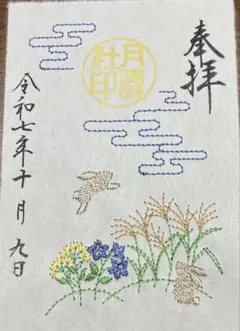 奉拝
月崎社印
令和七年十月九日